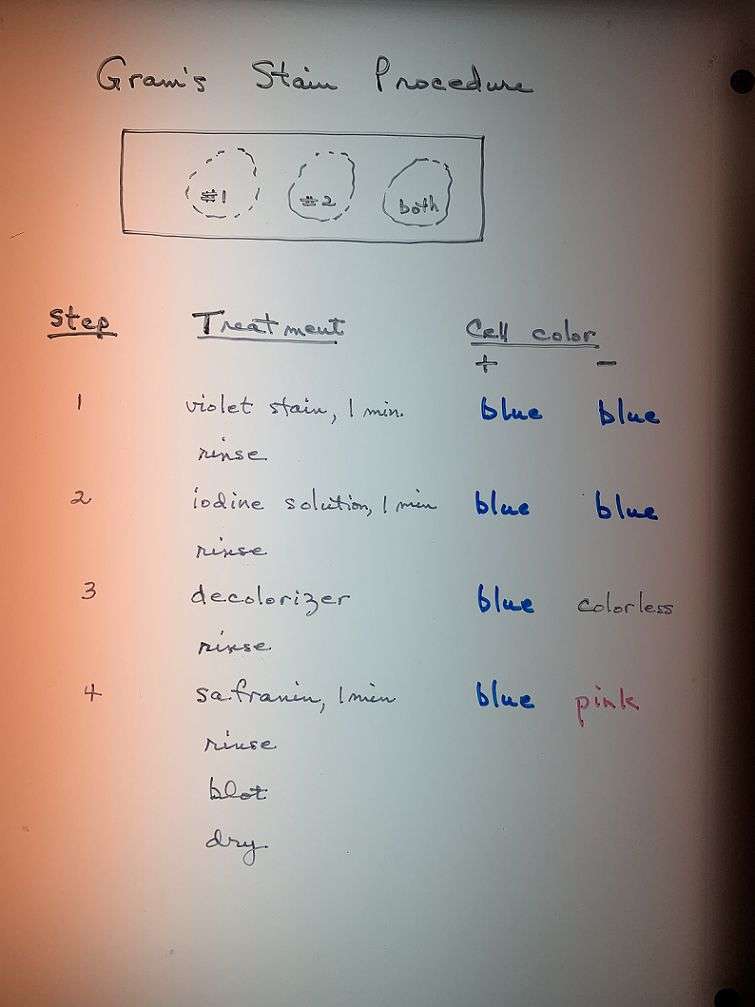 Gram's Stain Procedure
#1 #2 both
Step Treatment Cell color
+ −
1 violet stain, 1 min. blue blue
rinse
2 iodine solution, 1 min blue blue
rinse
3 decolorizer blue colorless
rinse
4 safranin, 1 min blue pink
rinse
blot
dry